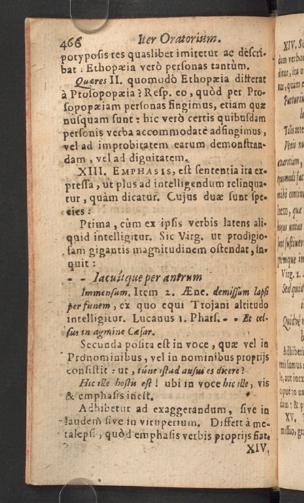 466 Iter Oratorium.
potyposis res quaslibet imitetur ac descri-
bat: Ethopæia verò personas tantùm.
Quæres II. quomodò Ethopæia differat
à Prosopopæia? Resp. eo, quòd per Pro-
sopopæiam personas fingimus, etiam quæ
nusquam sunt: hîc verò certis quibusdam
personis verba accommodatè adfingimus,
vel ad improbitatem earum demonstran-
dam, vel ad dignitatem.
XIII. EMPHASIS, est sententia ita ex-
pressa, ut plus ad intelligendum relinqua-
tur, quàm dicatur. Cujus duæ sunt spe-
cies:
Prima, cùm ex ipsis verbis latens ali-
quid intelligitur. Sic Virg. ut prodigio-
sam gigantis magnitudinem ostendat, in-
quit:
- - Iacuitque per antrum
Immensum. Item 2. Æne. demissum lapsi
per funem, ex quo equi Trojani altitudo
intelligitur. Lucanus 1. Phars. - - Et cel-
sus in agmine Cæsar.
Secunda posita est in voce, quæ vel in
Pronominibus, vel in nominibus proprijs
consistit: ut, túne istud ausui es dicere?
Hic ille hostis est! ubi in voce hic ille, vis
& emphasis inest.
Adhibetur ad exaggerandum, sive in
laudem sive in vituperium. Differt à me-
talepsi, quòd emphasis verbis proprijs fiat,
XIV.